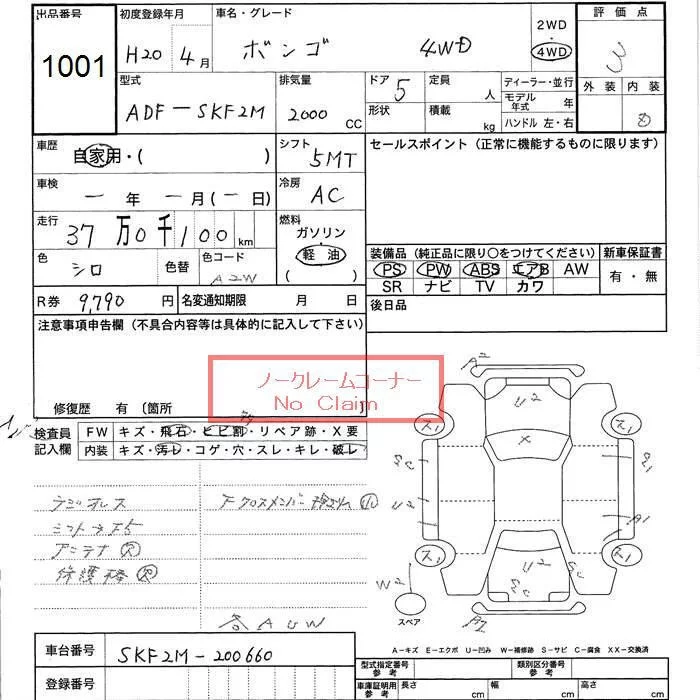 出品番号 初度登録年月 車名・グレード 2WD 評価点
1001 H20 4月 ボンゴ 4WD 4WD 3
外装 内装
型式 排気量 ドア 定員 ディーラー・並行
ADF-SKF2M 2000 CC 5 人 モデル年式 年
形状 積載 kg ハンドル 左・右
車歴 シフト セールスポイント (正常に機能するものに限ります)
自家用・( ) 5MT
車検 冷房
一 年 一 月(一 日) AC
走行 燃料
37万0千100km ガソリン
色 色替 色コード 軽油 装備品 (純正品に限り○をつけてください) 新車保証書
シロ A2W ( ) PS PW ABS エアB AW 有・無
SR ナビ TV カワ
R券 9,790円 名変通知期限 月 日 後日品
注意事項申告欄 (不具合内容等は具体的に記入して下さい)
ノークレームコーナー
No Claim
修復歴 有 〔箇所 〕
検査員 FW キズ・飛石・ヒビ割・リペア跡・X要
記入欄 内装 キズ・汚レ・コゲ・穴・スレ・キレ・破レ
A2
U2
X
U2
A1
W2
スペア
ラジオレス
アンテナ 欠
保護棒 欠
A・キズ E・エクボ U・凹み W・補修跡 S・サビ C・腐食 XX・交換済
車台番号 SKF2M-200660 型式指定番号 参考 類別区分番号 参考
登録番号 車庫証明用 参考 長さ cm 幅 cm 高さ cm